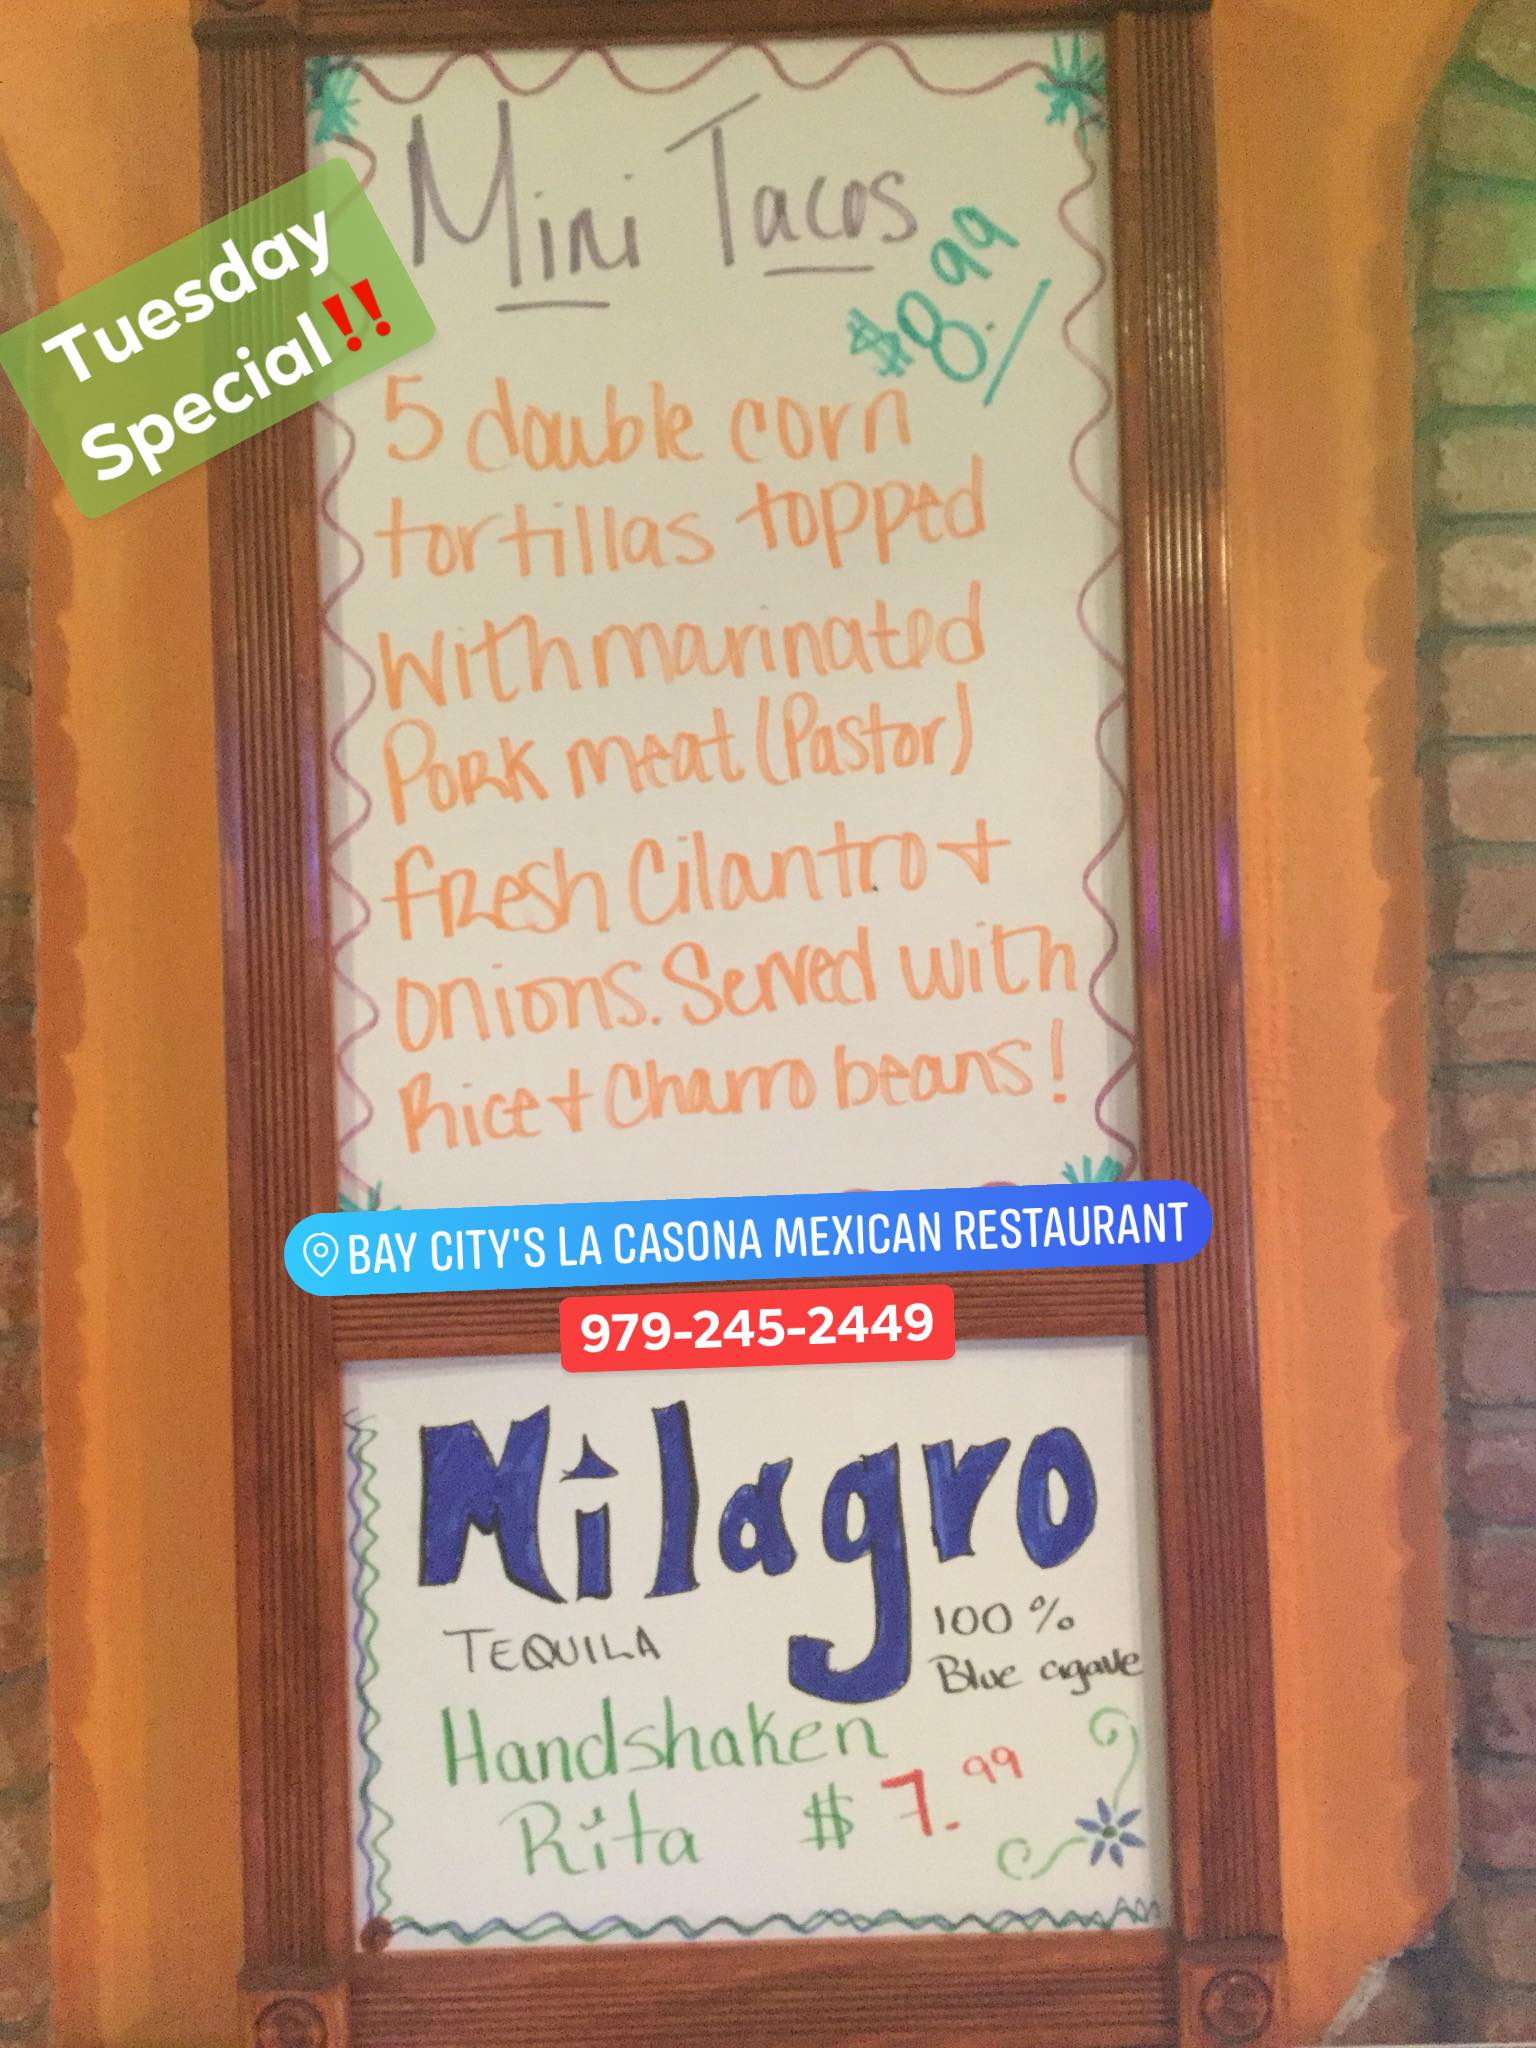 Mini Tacos
$8.99/
Tuesday
Special‼
5 double corn
tortillas topped
with marinated
Pork meat (Pastor)
fresh Cilantro +
onions. Served with
Rice + Charro beans!
BAY CITY'S LA CASONA MEXICAN RESTAURANT
979-245-2449
Milagro
TEQUILA
100%
Blue agave
Handshaken
Rita $7.99